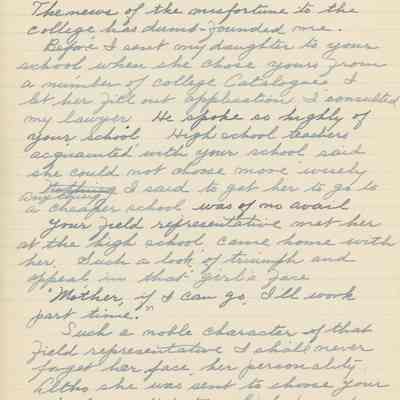 The news of the misfortune to the
college has dumb-founded me.
Before I sent my daughter to your
school when she chose yours from
a number of college Catalogues I
let her fill out application, I consulted
my lawyer. He spoke so highly of
your school. High school teachers
acquainted with your school said
she could not choose more wisely
Nothing I said to get her to go to
anything
a cheaper school was of no avail
Your field representative met her
at the high school, came home with
her. Such a look of triumph and
appeal in that girl's face
"Mother, if I can go, I'll work
part time."
Such a noble character of that
field representative I shall never
forget her face, her personality.
Altho she was sent to choose your